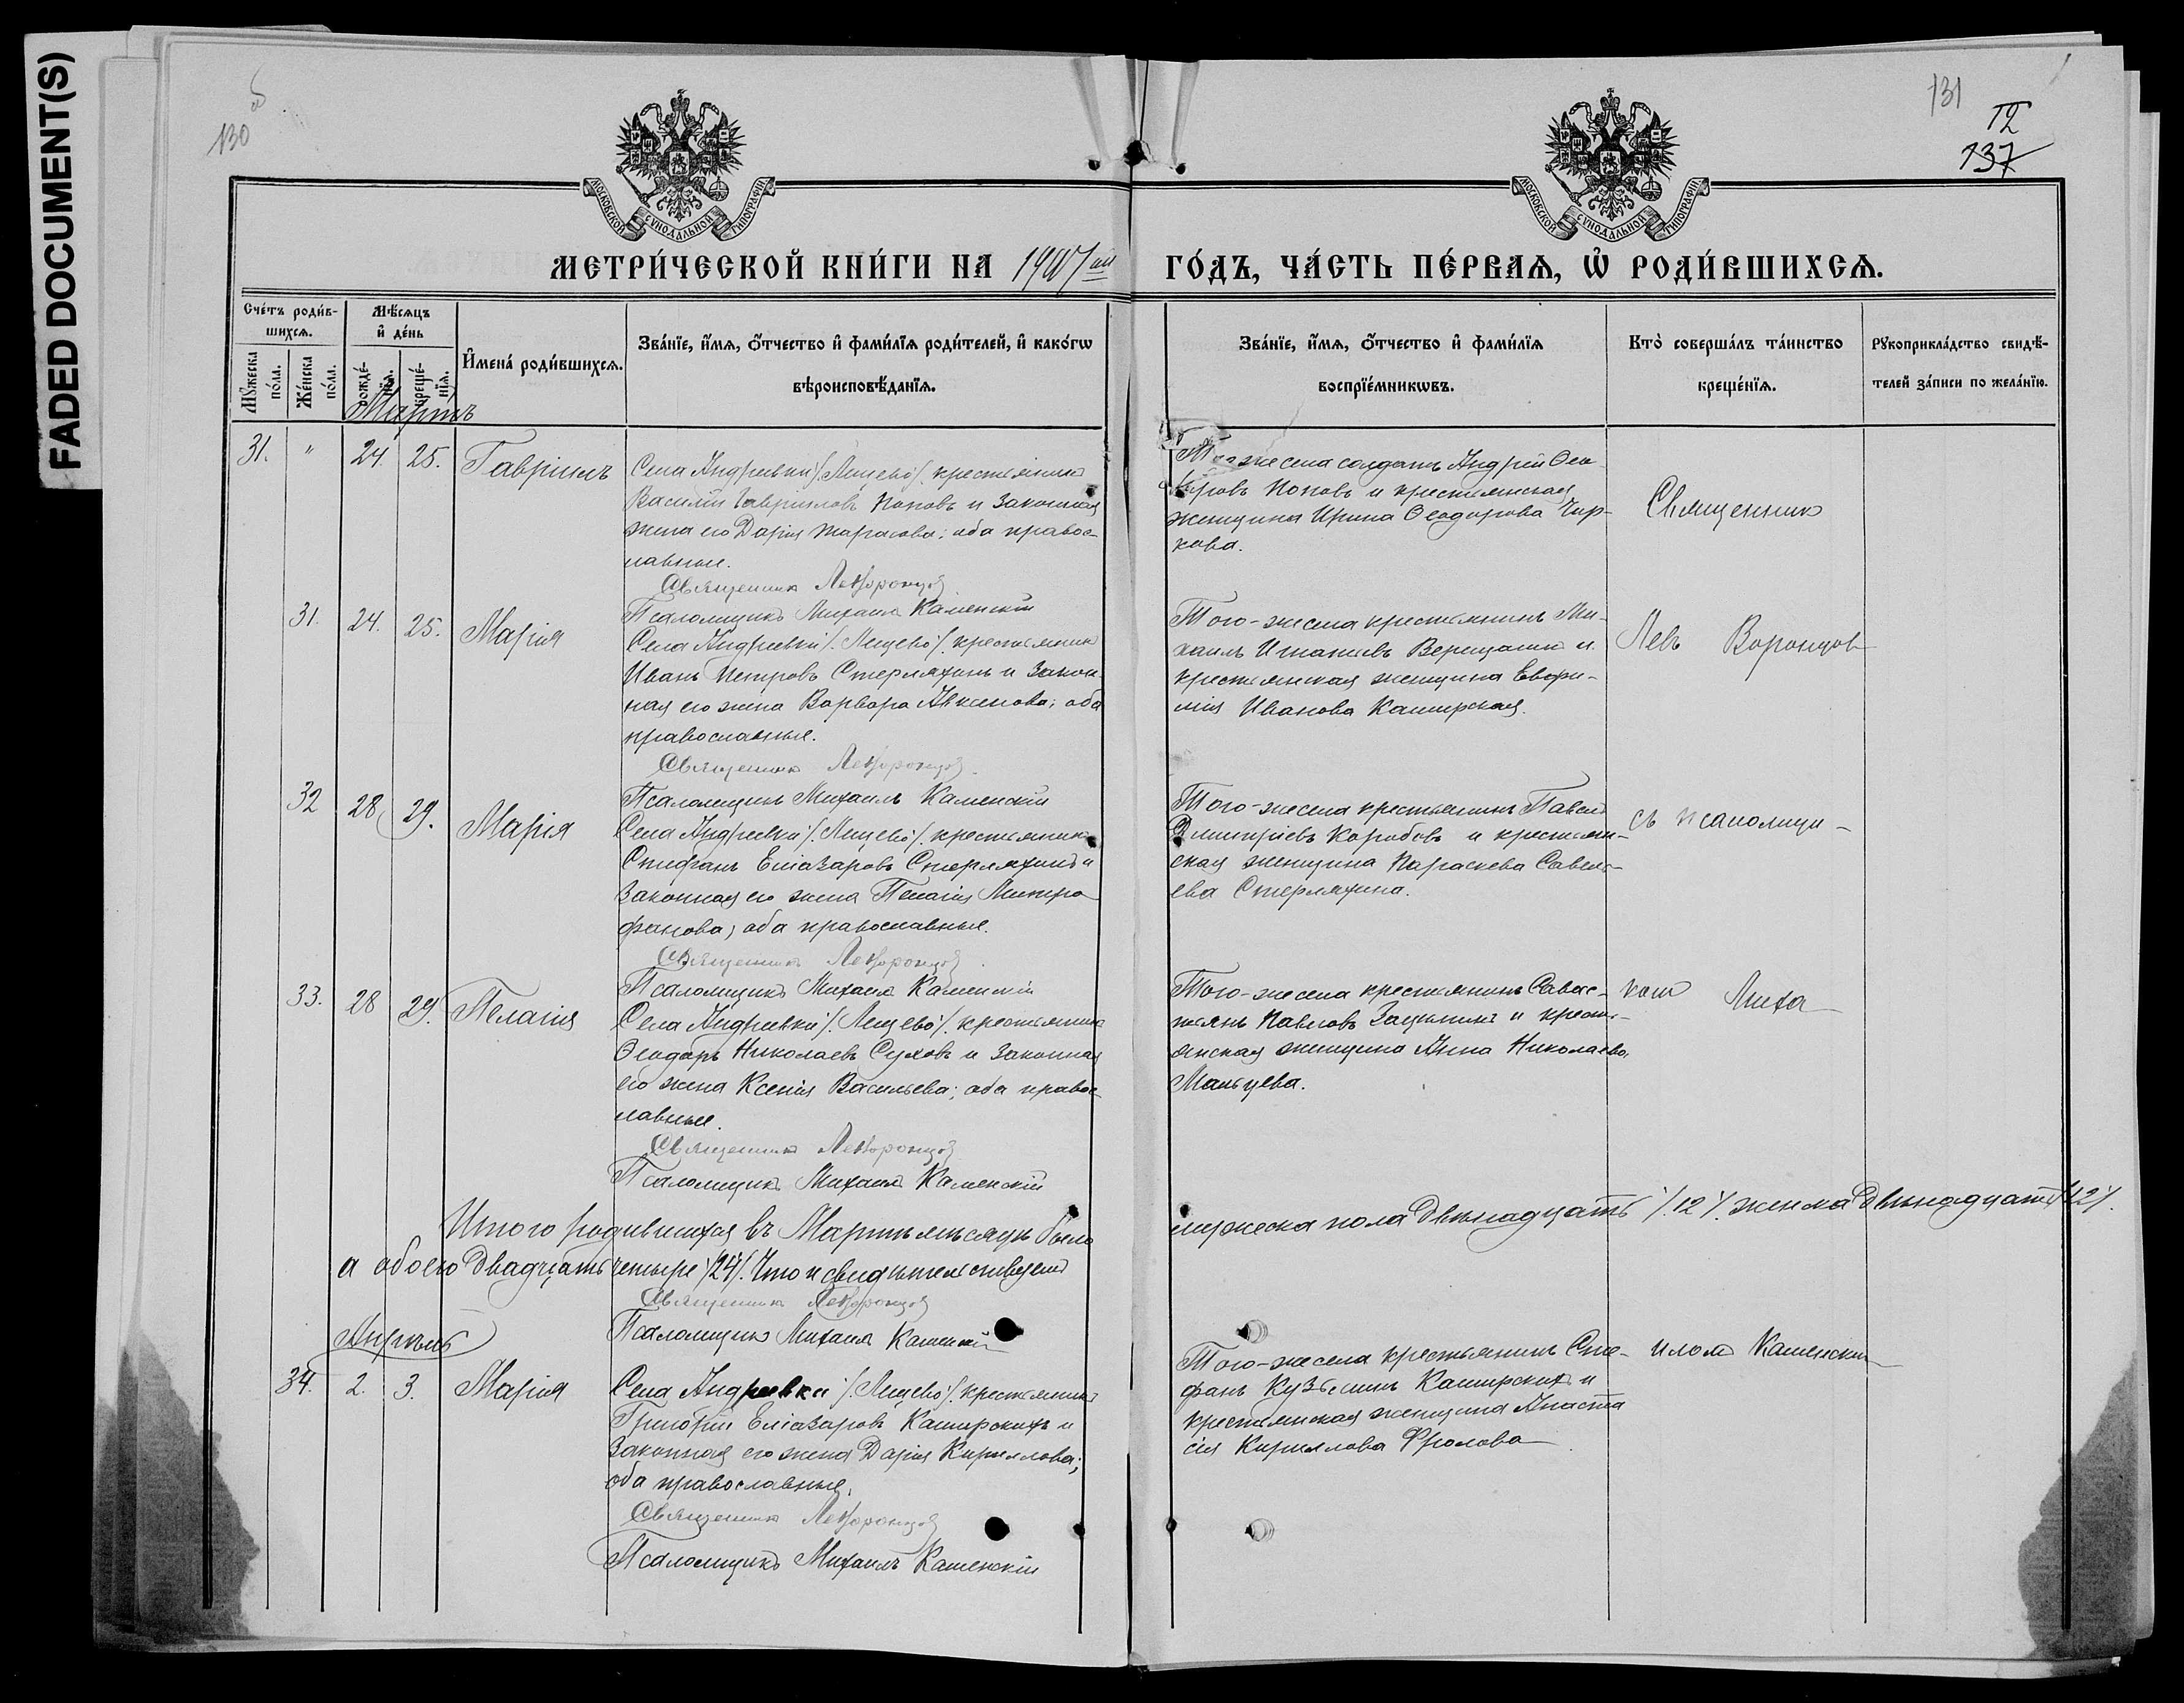 FADED DOCUMENT(S)
130 об
131
12
137
МОСКОВСКОЙ СѴНОДАЛЬНОЙ ТИПОГРАФІИ
МОСКОВСКОЙ СѴНОДАЛЬНОЙ ТИПОГРАФІИ
МЕТРИ́ЧЕСКОЙ КНИ́ГИ НА 1907 ый ГО́ДЪ, ЧА́СТЬ ПЕ́РВАѦ, Ѽ РОДИ́ВШИХСѦ.
Сче́тъ роди́в-
шихсѧ.
Мꙋжеска по́ла.
Же́нска по́ла.
Мѣ́сѧцъ
и҆ де́нь
рожде́-
нїѧ.
креще́-
нїѧ.
И҆мена̀ роди́вшихсѧ.
Зва́нїе, и҆́мѧ, ѻ҆́тчество и҆ фами́лїѧ роди́телей, и҆ како́гѡ
вѣроисповѣ́данїѧ.
Зва́нїе, и҆́мѧ, ѻ҆́тчество и҆ фами́лїѧ
воспрїе́мникѡвъ.
Кто̀ соверша́лъ та́инство
креще́нїѧ.
Рꙋкоприкла́дство свидѣ́-
телей за́писи по жела́нїю.
Мартъ
31. " 24. 25. Гавріилъ
Села Андреевки /Лещево/ крестьянинъ
Василій Гавріиловъ Поповъ и законная
жена его Дарія Тарасова; оба правос-
лавные.
Священникъ Левъ Воронцовъ
Псаломщикъ Михаилъ Каменскій
Того-же села солдатъ Андрей Ѳео-
доровъ Поповъ и крестьянская
женщина Ирина Ѳеодорова Чир-
кова.
Священникъ
31. 24. 25. Марія
Села Андреевки /Лещево/ крестьянинъ
Иванъ Петровъ Стерляхинъ и закон-
ная его жена Варвара Авксенова; оба
православные.
Священникъ Левъ Воронцовъ
Псаломщикъ Михаилъ Каменскій
Того-же села крестьянинъ Ми-
хаилъ Игнатьевъ и
крестьянская женщина Евфи-
мія Иванова Каширская.
Левъ Воронцовъ
32 28 29. Марія
Села Андреевки /Лещево/ крестьянинъ
Стефанъ Еліазаровъ Стерляхинъ и
законная его жена Пелагія Митро-
фанова; оба православные.
Священникъ Левъ Воронцовъ
Псаломщикъ Михаилъ Каменскій
Того-же села крестьянинъ Павелъ
Димитріевъ Коробовъ и крестьян-
ская женщина Параскева Савель-
ева Стерляхина.
съ псаломщи-
33. 28 29. Пелагія
Села Андреевки /Лещево/ крестьянинъ
Ѳеодоръ Николаевъ Суховъ и законная
его жена Ксенія Васильева; оба правос-
лавные.
Священникъ Левъ Воронцовъ
Псаломщикъ Михаилъ Каменскій
Того-же села крестьянинъ Савас-
тьянъ Павловъ и кресть-
янская женщина Анна Николаева
Мальцева.
комъ Миха-
Итого родившихся въ Мартѣ мѣсяцѣ было мужеска пола двѣнадцать /12/. женска двѣнадцать /12/.
а обоего двадцать четыре /24/. Что и свидѣтельствуемъ
Священникъ Левъ Воронцовъ
Псаломщикъ Михаилъ Каменскій
Апрѣль
34. 2. 3. Марія
Села Андреевки /Лещево/ крестьянинъ
Григорій Еліазаровъ Каширскихъ и
законная его жена Дарія Кириллова;
оба православные.
Священникъ Левъ Воронцовъ
Псаломщикъ Михаилъ Каменскій
Того-же села крестьянинъ Сте-
фанъ Кузьминъ Каширскихъ и
крестьянская женщина Анаста-
сія Кириллова Фролова
иломъ Каменскимъ